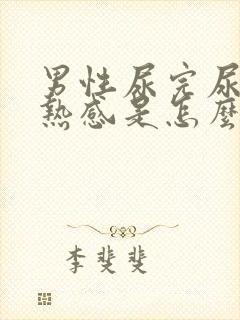 男性尿完尿
熱感是怎麼
李斐斐